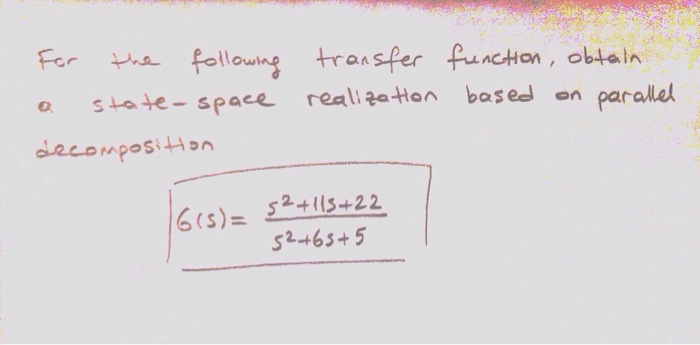 For the following transfer function, obtain
a state-space realization based on parallel
decomposition
G(s)= s²+11s+22
s²+6s+5